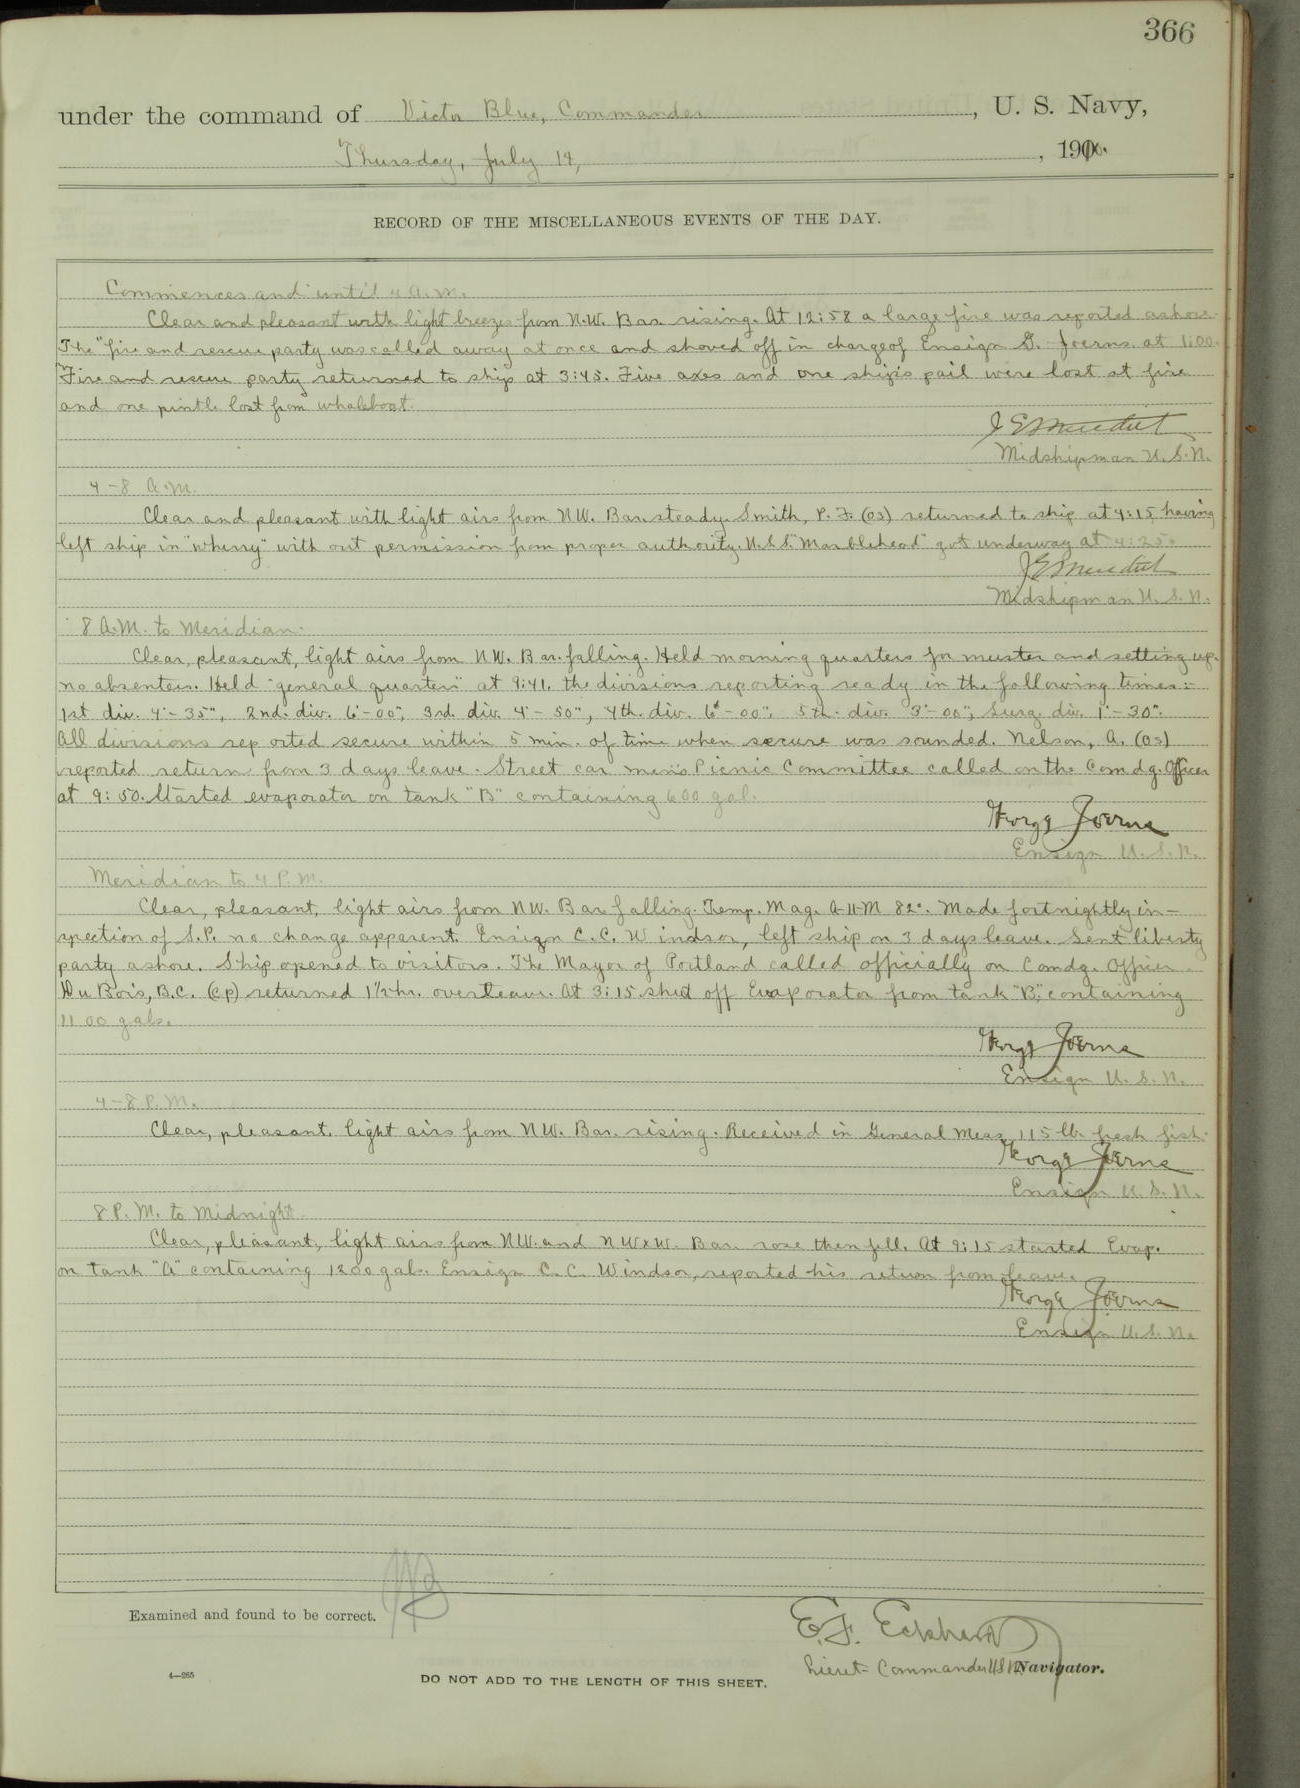 366
under the command of Victor Blue, Commander, U. S. Navy,
Thursday, July 14, 1910.
RECORD OF THE MISCELLANEOUS EVENTS OF THE DAY.
Commences and until 4 A.M.
Clear and pleasant with light breezes from N.W. Bar. rising. At 12:58 a large fire was reported ashore.
The "fire and rescue party was called away at once and shoved off in charge of Ensign G. Joerns. at 1:00.
Fire and rescue party returned to ship at 3:45. Five axes and one ship's pail were lost at fire
and one pintle lost from whaleboat.
Midshipman U.S.N.
4-8 A.M.
Clear and pleasant with light airs from NW. Bar. steady. Smith, P. F. (os) returned to ship at 4:15 having
left ship in "wherry" with out permission from proper authority. U.S.S. "Marblehead" got underway at 4:25.
Midshipman U. S. N.
8 A.M. to Meridian.
Clear, pleasant, light airs from NW. Bar. falling. Held morning quarters for muster and setting up.
no absentees. Held "general quarters" at 9:41. the divisions reporting ready in the following times:-
1st div. 4'-35", 2nd. div. 6'-00", 3rd. div. 4'-50", 4th. div. 6'-00", 5th. div. 3'-00", Surg. div. 1'-30".
All divisions reported secure within 5 min. of time when secure was sounded. Nelson, A. (os)
reported return from 3 days leave. Street car men's Picnic Committee called on the Comdg. Officer
at 9:50. Started evaporator on tank "B" containing 600 gal.
George Joerns
Ensign U.S.N.
Meridian to 4 P.M.
Clear, pleasant, light airs from NW. Bar. falling. Temp. Mag. A-11-M 82°. Made fortnightly in-
spection of S.P. no change apparent. Ensign C.C. Windsor, left ship on 3 days leave. Sent liberty
party ashore. Ship opened to visitors. The Mayor of Portland called officially on Comdg. Officer.
Du Bois, B.C. (cp) returned 1½ hr. overleave. At 3:15 shut off Evaporator from tank "B", containing
1100 gals.
George Joerns
Ensign U. S. N.
4-8 P.M.
Clear, pleasant, light airs from NW. Bar. rising. Received in General Mess, 115 lb. fresh fish.
George Joerns
Ensign U. S. N.
8 P. M. to Midnight.
Clear, pleasant, light airs from NW. and NWxW. Bar. rose then fell. At 9:15 started Evap.
on tank "A" containing 1200 gals. Ensign C. C. Windsor, reported his return from leave.
George Joerns
Ensign U. S. N.
Examined and found to be correct.
E. F. Eckhardt
Lieut-Commander U.S.N. Navigator.
4—265
DO NOT ADD TO THE LENGTH OF THIS SHEET.